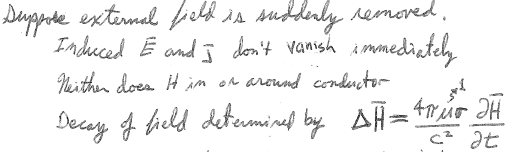 Suppose external field is suddenly removed.
Induced E̅ and J̅ don't vanish immediately
Neither does H in or around conductor
Decay of field determined by ΔH̅ = 4πμσ/c² ∂H̅/∂t